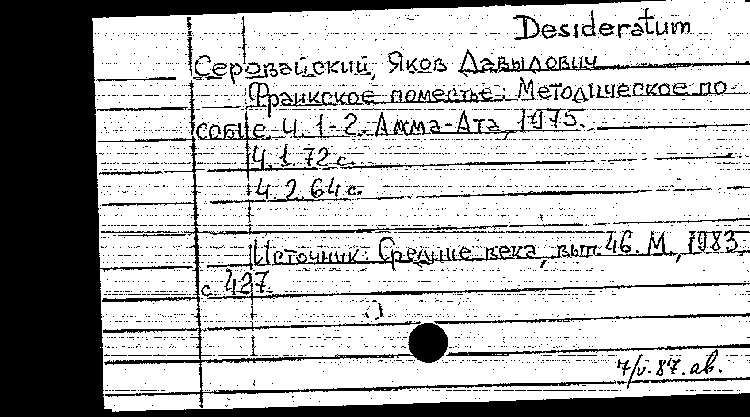 Desideratum
Серовайский, Яков Давыдович
Франкское поместье: Методическое по
собие Ч. 1-2. Алма-Ата, 1975.
Ч. 1. 72 с.
Ч. 2. 64 с.
Источник: Средние века, вып. 46. М., 1983,
с. 427.
7/V.87. ав.